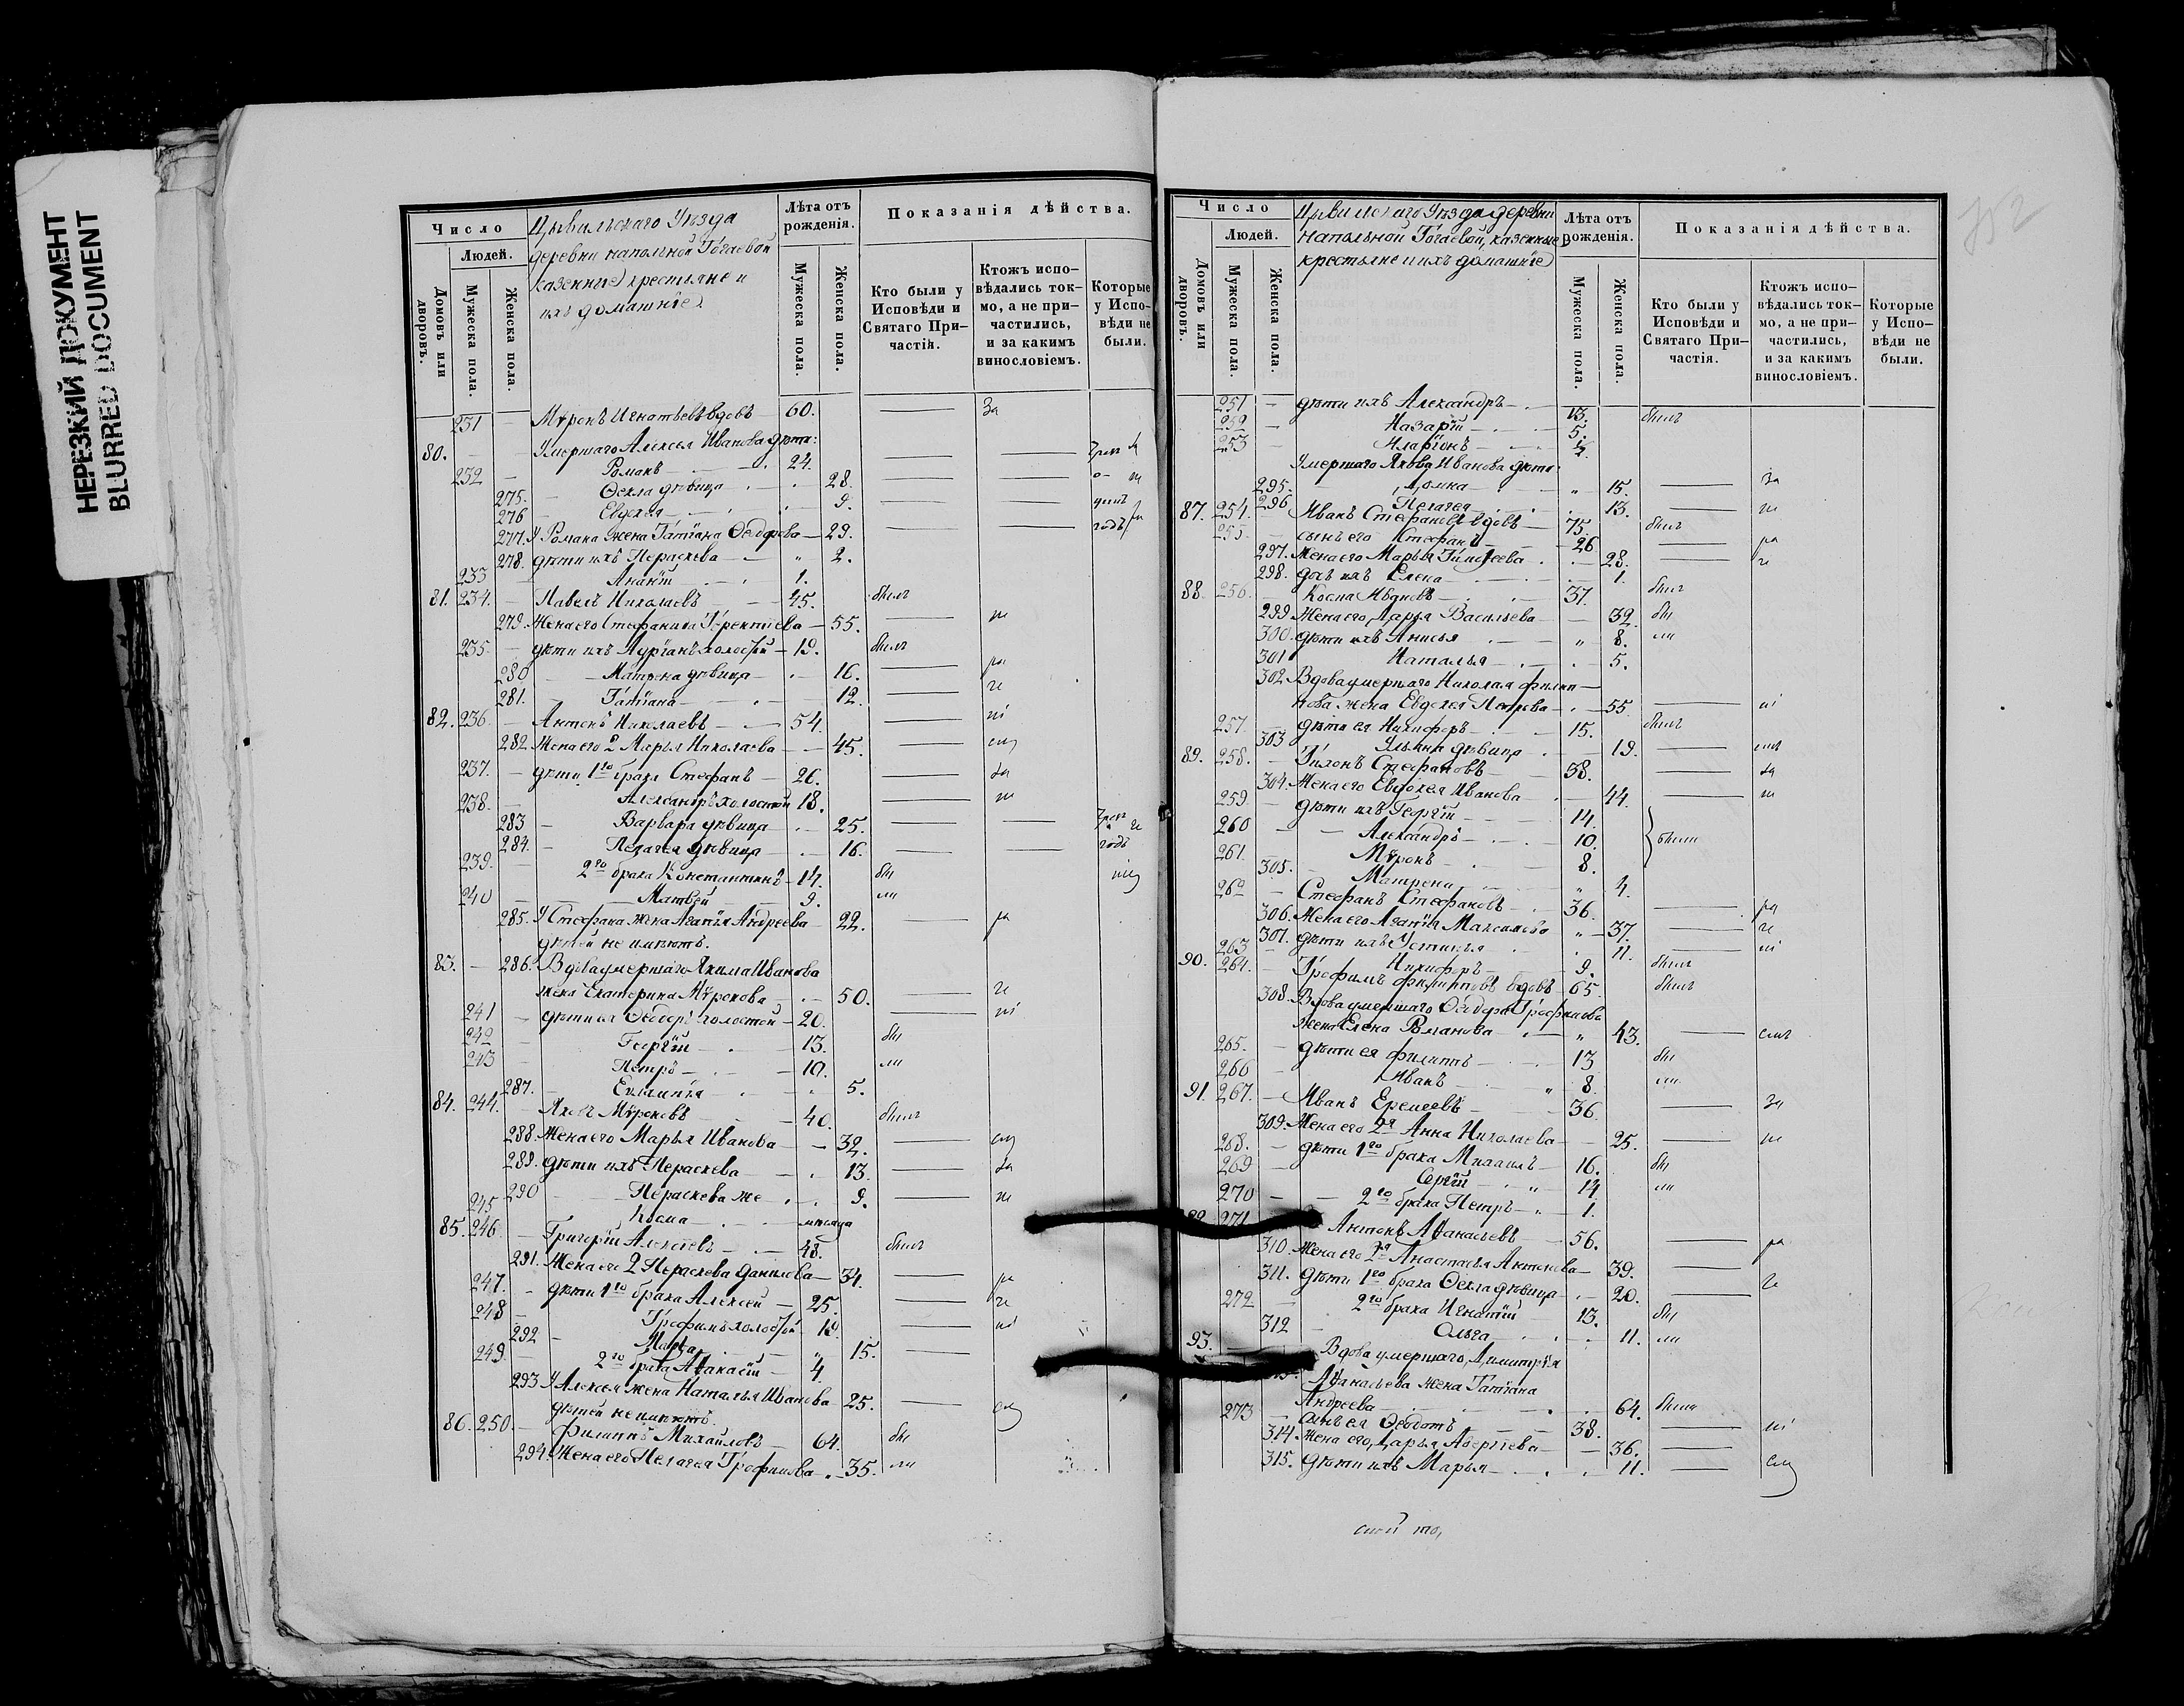 НЕРЕЗКИЙ ДОКУМЕНТ
BLURRED DOCUMENT
Число
Людей.
Домовъ или дворовъ.
Мужеска пола.
Женска пола.
Цывильскаго Уѣзда
деревни напольной Тогаевой
казенные крестьяне и
ихъ домашніе
Лѣта отъ рожденія.
Мужеска пола.
Женска пола.
Показанія дѣйства.
Кто были у Исповѣди и Святаго Причастія.
Ктожъ исповѣдались токмо, а не причастились, и за какимъ винословіемъ.
Которые у Исповѣди не были.
231 Мѵронъ Игнатьевъ вдовъ 60. За
80. Умершаго Алексѣя Иванова дѣти:
232 Романъ 24.
275. Ѳекла дѣвица 28.
276 Евдокія 9.
277. У Романа жена Татіана Ѳеодорова 29.
278. дѣти ихъ Параскева 2.
233 Ананій 1.
81. 234. Павелъ Николаевъ 45. былъ
279. Жена его Стефанида Терентіева 55.
235. дѣти ихъ Луріанъ холостой 19. былъ
280 Матрена дѣвица 16. ра
281. Татіана 12. че
82. 236. Антонъ Николаевъ 54. ні
282. Жена его 2 Марья Николаева 45.
237. дѣти 1го брака Стефанъ 26. За
238. Александръ холостой 18.
283 Варвара дѣвица 25.
284. Пелагея дѣвица 16. годъ
239. 2го брака Константинъ 14. бы
240 Матвей 9. ли
285. У Стефана жена Агапія Андреева 22. ра
дѣтей не имѣютъ.
83. 286. Вдова умершаго Якима Иванова
жена Екатерина Мѵронова 50. че
241 дѣти ея Ѳеодоръ холостой 20. ні
242 Георгій 13. бы
243 Петръ 10. ли
287. Евлампія 5.
84. 244. Яковъ Мѵроновъ 40. былъ
288. Жена его Марья Иванова 32.
289. дѣти ихъ Параскева 13. За
290 Параскева же 9.
245 Косма мѣсяца
85. 246. Григорій Алексѣевъ 48. былъ
291. Жена его 2 Параскева Данилова 34. ра
247. дѣти 1го брака Алексей 25. че
248 Трофимъ холостой 19. ні
292 Марѳа 15.
249. 2го брака Аѳанасій 4
293 У Алексѣя жена Наталья Иванова 25.
дѣтей не имѣютъ.
86. 250. Филиппъ Михайловъ 64. бы
294. Жена его Пелагея Трофимова 35. ли
Число
Людей.
Домовъ или дворовъ.
Мужеска пола.
Женска пола.
Цывильскаго Уѣзда деревни
напольной Тогаевой, казенные
крестьяне и ихъ домашніе
Лѣта отъ рожденія.
Мужеска пола.
Женска пола.
Показанія дѣйства.
Кто были у Исповѣди и Святаго Причастія.
Ктожъ исповѣдались токмо, а не причастились, и за какимъ винословіемъ.
Которые у Исповѣди не были.
251 дѣти ихъ Александръ 13. былъ
252 Назарій 5.
253 Иларіонъ
Умершаго Якова Иванова дѣти:
295. Домна 15. За
296 Пелагея 13.
87. 254. Иванъ Стефановъ вдовъ 75. былъ
255. сынъ его Стефанъ 26 ра
297. Жена его Марья Тимоѳеева 28. че
298. дочь ихъ Елена 1.
88. 256. Косма Ивановъ 37. былъ
299 Жена его Дарья Васильева 32. бы
300. дѣти ихъ Анисья 8. ли
301 Наталья 5.
302. Вдова умершаго Николая Филип-
пова жена Евдокея Петрова 55. ні
257. дѣти ея Никифоръ 15. былъ
303 Ульяна дѣвица 19.
89. 258. Тихонъ Стефановъ 58. За
304. Жена его Евдокея Иванова 44.
259. дѣти ихъ Георгій 14.
260 Александръ 10. были
261. Мѵронъ 8.
305. Матрена 4.
262 Стефанъ Стефановъ 36. ра
306. Жена его Агапія Максимова 37. че
307. дѣти ихъ Устинья 11. ні
263 Никифоръ 9. былъ
90. 264. Трофимъ Филипповъ вдовъ 65. былъ
308. Вдова умершаго Ѳеодора Трофимова
жена Елена Романова 43.
265. дѣти ея Филиппъ 13 бы
266 Иванъ 8. ли
91. 267. Иванъ Еремеевъ 36. За
309. Жена его 2я Анна Николаева 25.
268. дѣти 1го брака Михаилъ 16. бы
269 Сергій 14 ли
270 2го брака Петръ 1.
92. 271 Антонъ Аѳанасьевъ 56. ра
310. Жена его 2я Анастасья Антонова 39.
311. дѣти 1го брака Ѳекла дѣвица 20. че
272 2го брака Игнатій 13. бы
312 Ольга 11. ли
93. Вдова умершаго Димитрія
Аѳанасьева жена Татіана
Андреева 64. была
273 сынъ ея Ѳеодотъ 38. ні
314. Жена его, Дарья Аверкіева 36.
315. дѣти ихъ Марья 11.